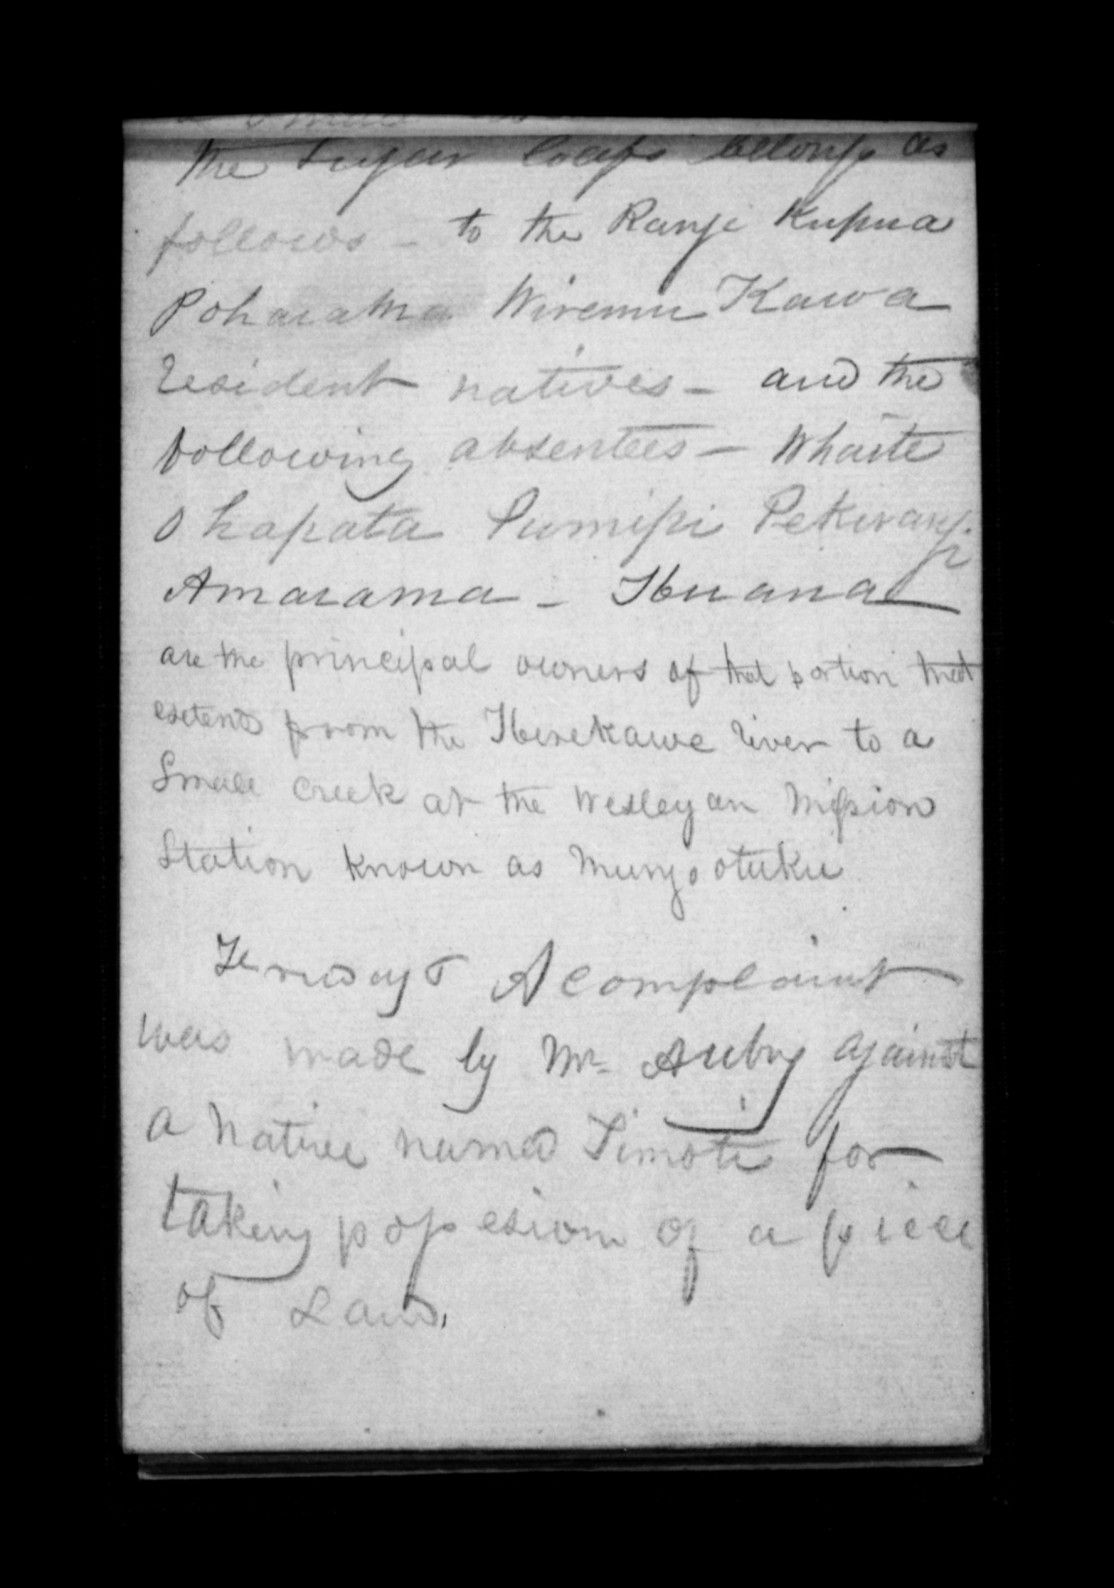 the Sugar loafs belongs as
follows – to the Rangi Kupua
Poharama Wiremu Kawa
resident natives – and the
following absentees – Whaite
O hapata Pumipi Pekirangi
Amarama – Huana
are the principal owners of that portion that
extends from the Herekawe river to a
Small Creek at the Wesleyan Mission
Station known as Mungootuku
Friday A complaint
was made by Mr. Aubry against
a Native named Timoti for
taking possesion of a piece
of Land.